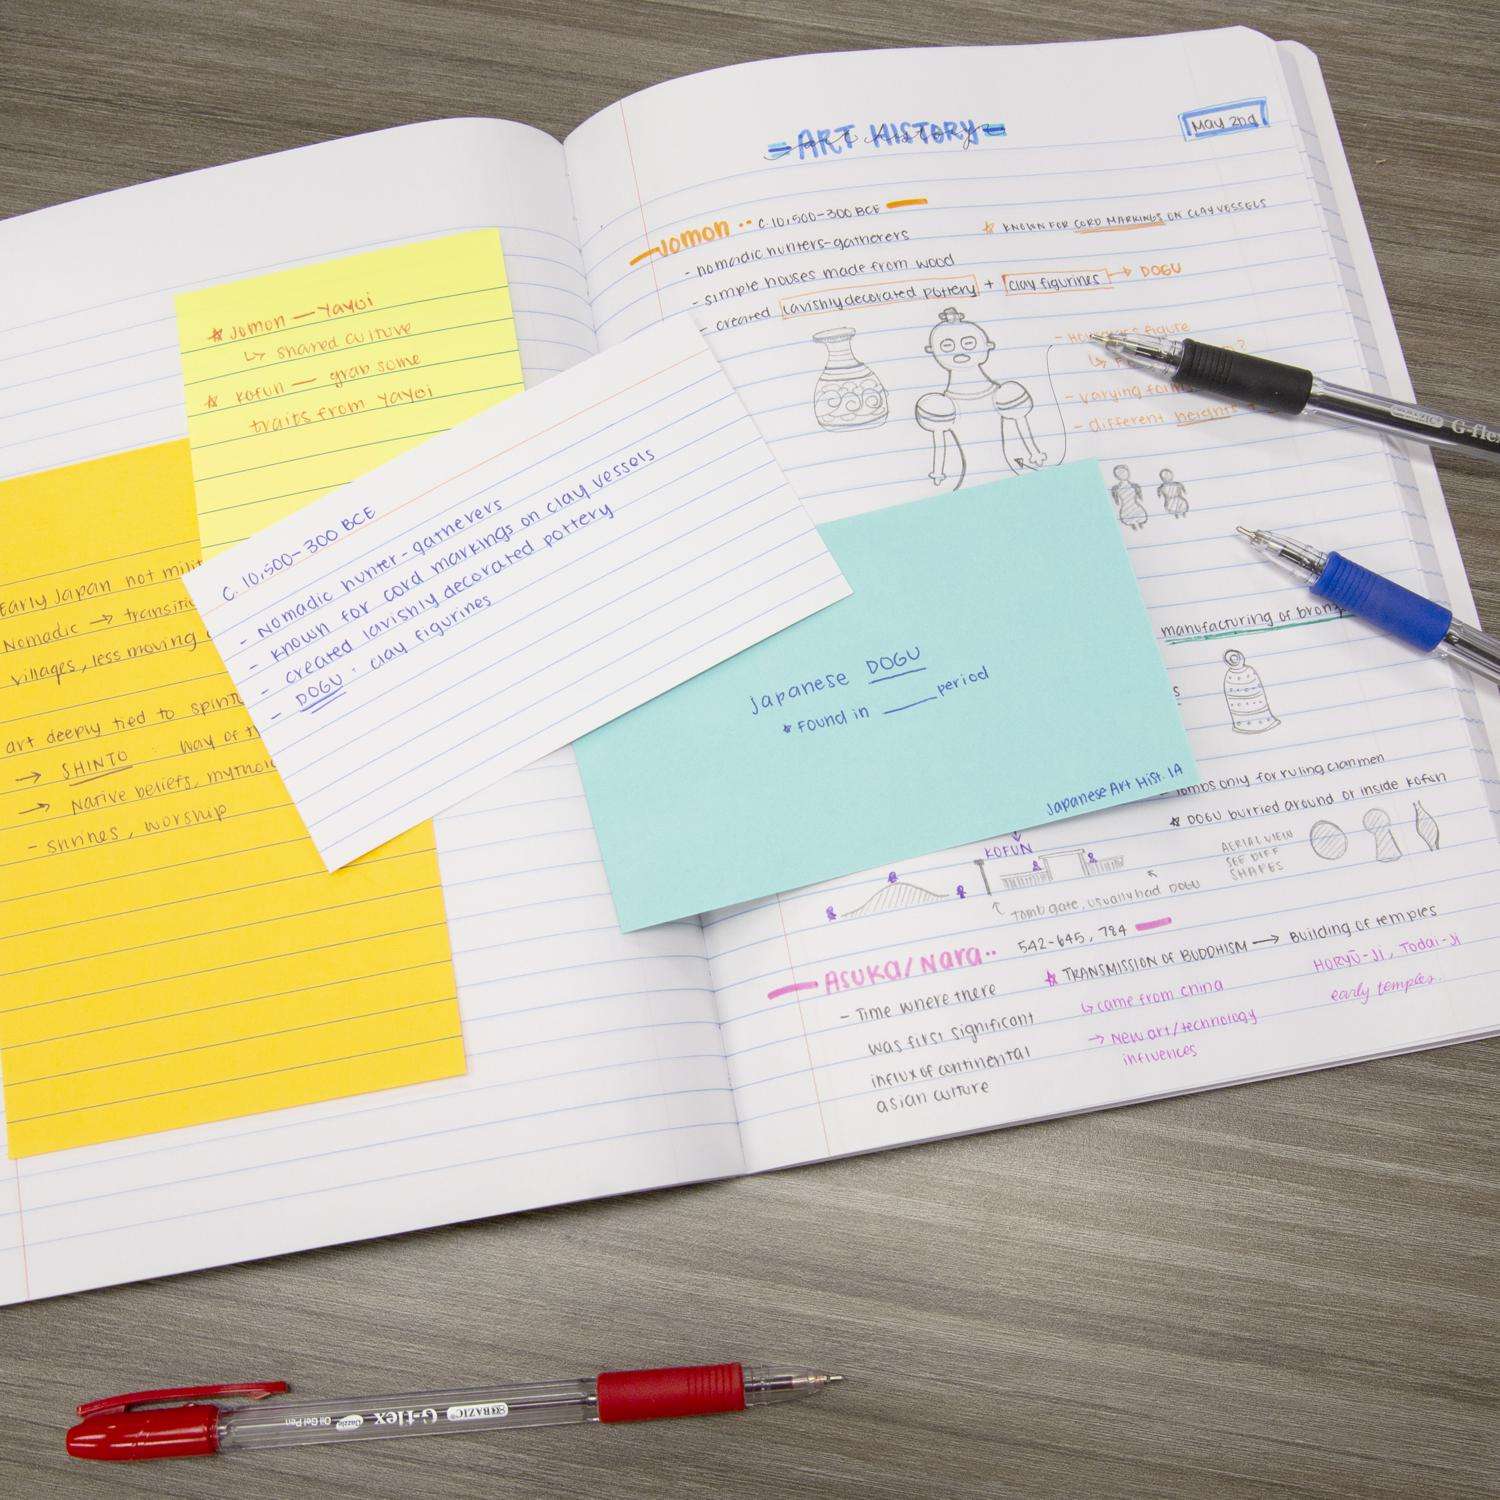 ART HISTORY
May 2nd
Jomon •• C. 10,500-300 BCE
- nomadic hunters-gatherers
☆ KNOWN FOR CORD MARKINGS ON CLAY VESSELS
- simple houses made from wood
- created lavishly decorated pottery + clay figurines → DOGU
figure
- varying
- different heights
manufacturing of
Tombs only for ruling clanmen
☆ DOGU burried around or inside Kofun
AERIAL VIEW
SEE DIFF
SHAPES
KOFUN
Tomb gate, usually had DOGU
Asuka/Nara•• 542-645, 784
- Time where there
was first significant
influx of continental
asian culture
☆ TRANSMISSION OF BUDDHISM → Building of temples
↳ came from China
→ New art/technology
influences
HORYŪ-JI, Todai-JI
early temples.
☆ Jomon — Yayoi
↳ shared culture
☆ Kofun — grab some
traits from Yayoi
C. 10,500-300 BCE
- Nomadic hunter-gatherers
- known for cord markings on clay vessels
- created lavishly decorated pottery
- DOGU: clay figurines
Japanese DOGU
* Found in ____ period
Japanese Art Hist. 1A
Early Japan not
Nomadic →
villages, less moving
art deeply tied to
→ SHINTO : Way of
→ Native beliefs,
- shrines, worship
BAZIC G-flex
BAZIC G-flex Dazzle Oil Gel Pen